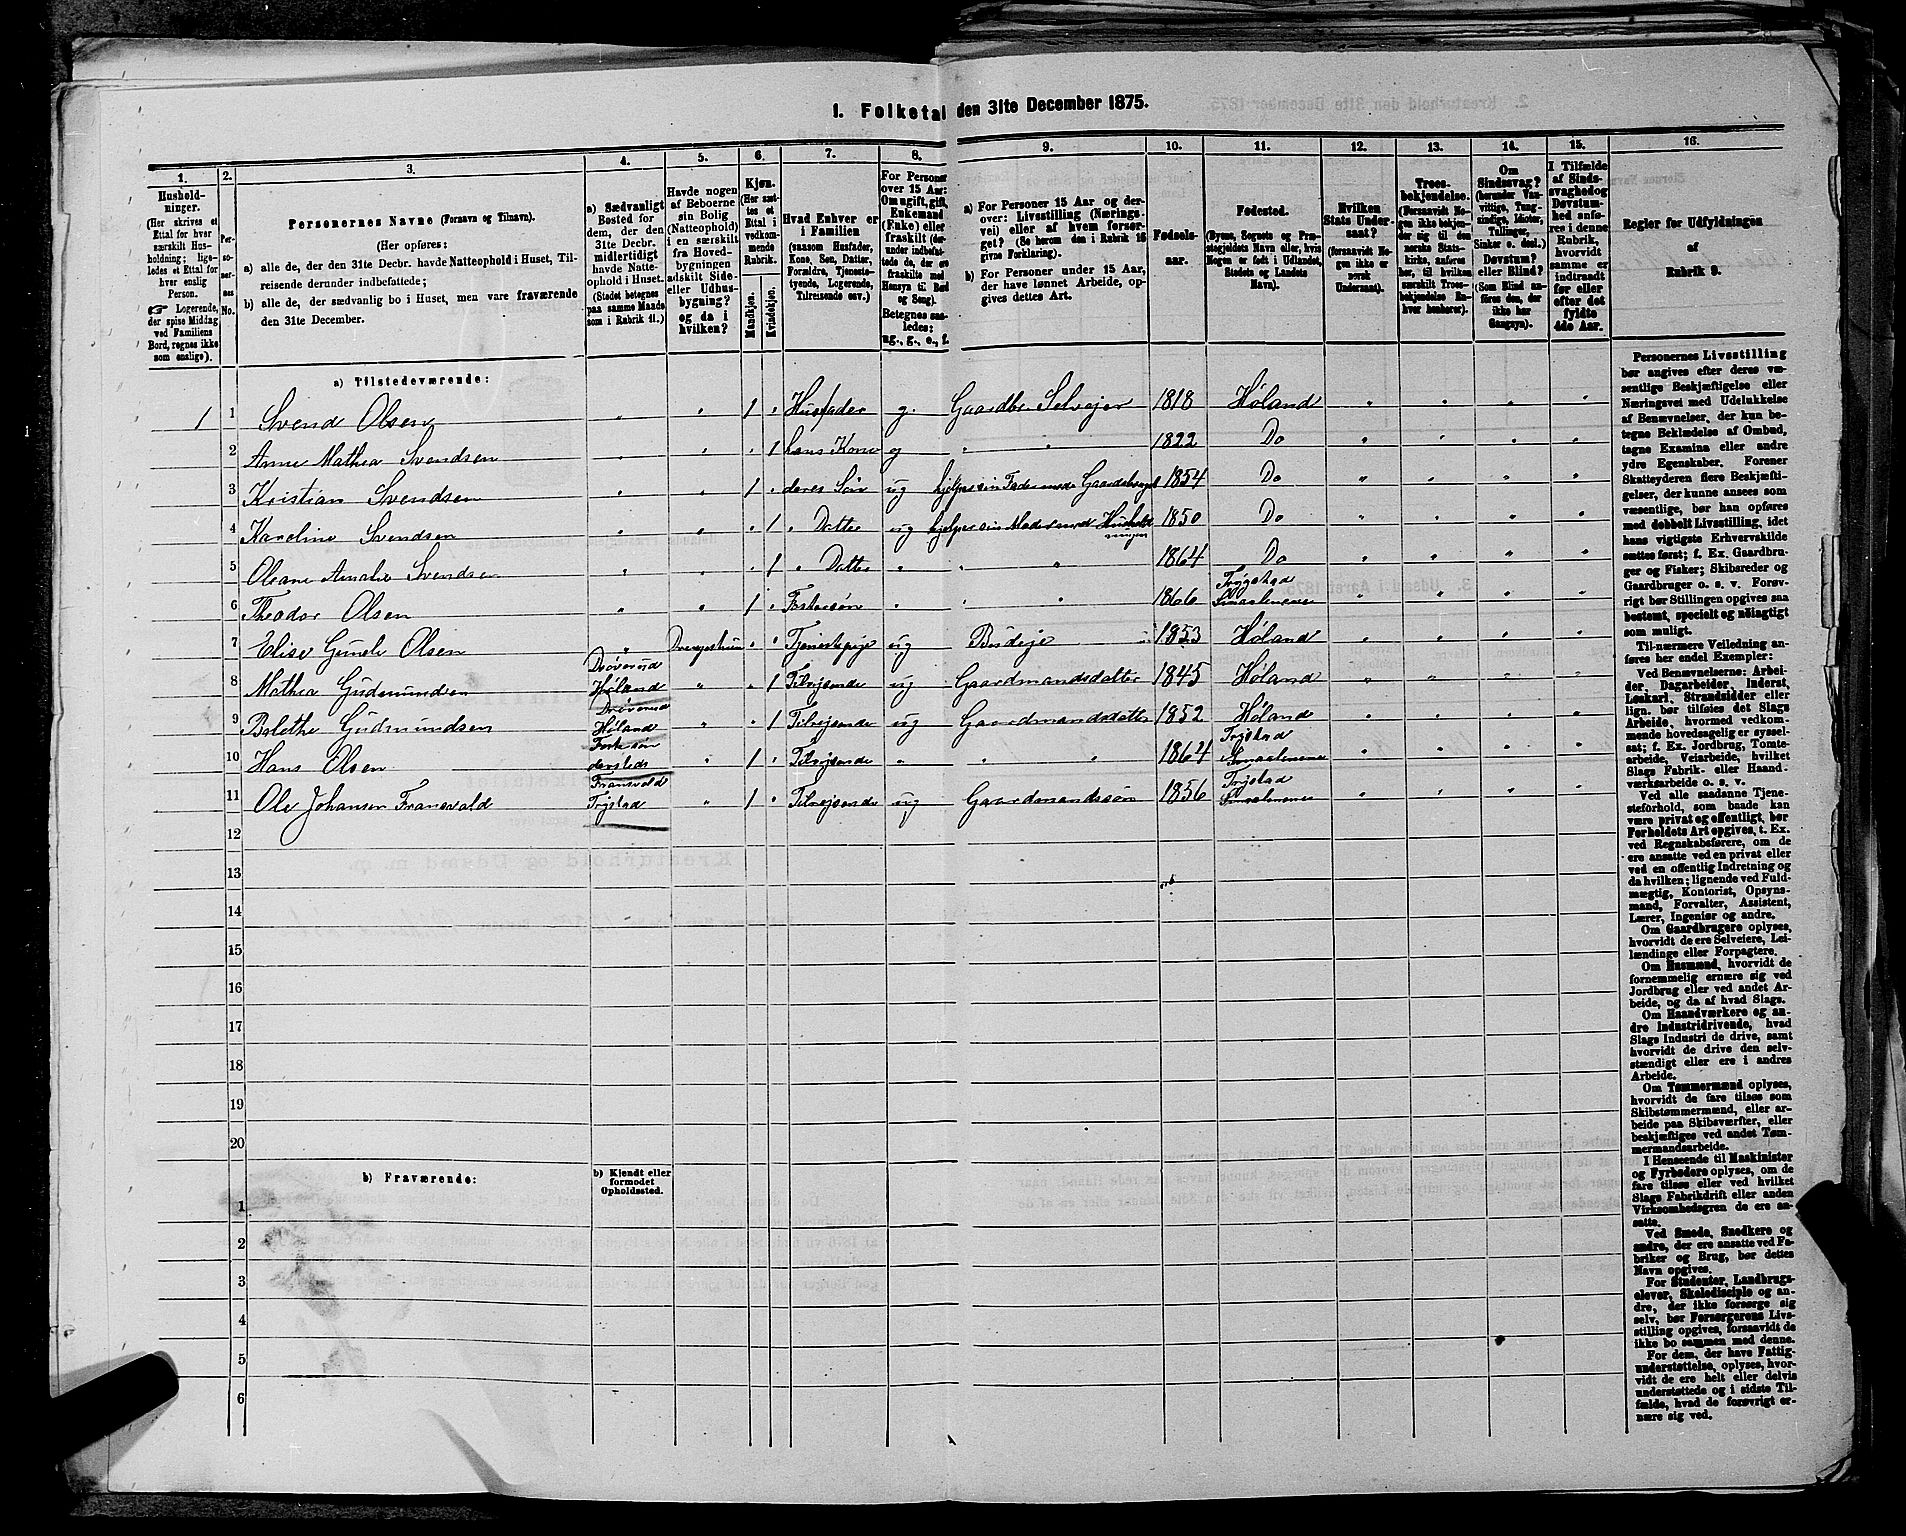 1. Folketal den 31te December 1875.
1. 2. 3. 4. 5. 6. 7. 8. 9. 10. 11. 12. 13. 14. 15. 16.
Husholdninger.
(Her skrives et
Ettal for hver
særskilt Husholdning;
ligeledes et Ettal for
hver enslig
Person.
☞ Logerende,
der spise Middag
ved Familiens
Bord, regnes ikke
som enslige).
Personernes No.
Personernes Navne (Fornavn og Tilnavn).
(Her opføres:
a) alle de, der den 31te Decbr. havde Natteophold i Huset, Tilreisende derunder indbefattede;
b) alle de, der sædvanlig bo i Huset, men vare fraværende
den 31te December.
a) Sædvanligt
Bosted for
dem, der den
31te Decbr.
midlertidigt
havde Natteophold i Huset.
(Stedet betegnes
paa samme Maade
som i Rubrik 11.)
Havde nogen
af Beboerne
sin Bolig
(Natteophold)
i en særskilt
fra Hovedbygningen
adskilt Side-
eller Udhusbygning?
og da i
hvilken?
Kjøn.
(Her sættes et
Ettal i
vedkommende
Rubrik.
Mandkjøn.
Kvindekjøn.
Hvad Enhver er
i Familien
(saasom Husfader,
Kone, Søn, Datter,
Forældre, Tjenestetyende, Logerende,
Tilreisende osv.)
For Personer
over 15 Aar:
Om ugift, gift,
Enkemand
(Enke) eller
fraskilt (derunder indbefattede de, der ere
fraskilte med
Hensyn til Bord
og Seng).
Betegnes saaledes:
ug., g., e., f.
a) For Personer 15 Aar og derover: Livsstilling (Næringsvei) eller af hvem forsørget? (Se herom den i Rubrik 16
givne Forklaring).
b) For Personer under 15 Aar,
der have lønnet Arbeide, opgives dettes Art.
Fødselsaar.
Fødested.
(Byens, Sognets og Præstegjeldets Navn eller, hvis
Nogen er født i Udlandet,
Stedets og Landets
Navn).
Hvilken
Stats Undersaat?
(forsaavidt Nogen ikke er
norsk
Undersaat).
Troesbekjendelse.
(Forsaavidt Nogen ikke bekjender sig til den
norske Statskirke, anføres
her, til hvilken
særskilt Troesbekjendelse Enhver henhører).
Om
Sindssvag?
(herunder Vanvittige, Tungsindige, Idioter,
Tullinger,
Sinker o. desl.)
Døvstum?
eller Blind?
(Som Blind anføres den, der
ikke har
Gangsyn).
I Tilfælde
af Sindssvaghed og
Døvstumhed anføres i denne
Rubrik,
hvorvidt
samme er
indtraadt
før eller
efter det
fyldte
4de Aar.
Regler for Udfyldningen
af
Rubrik 9.
a) Tilstedeværende:
1 1 Svend Olsen " " 1 " Husfader g. Gaardbr. Selvejer 1818 Høland " " " "
2 Anne Mathea Svendsen " " " 1 hans Kone g " " 1822 Do " " " "
3 Kristian Svendsen " " 1 " deres Søn ug hjelper sin Fader med Gaardsbruget 1854 Do " " " "
4 Karoline Svendsen " " " 1 " Datter ug hjelper sin Moder med Husholdningen 1850 Do " " " "
5 Oleane Amalie Svendsen " " " 1 " Datter " " " 1864 Do " " " "
6 Theodor Olsen " " 1 " Fostersøn " " " 1866 Trygstad Smaalenene " " " "
7 Elise Gunele Olsen " " " Tjenestepige ug Budeje 1853 Høland " " " "
8 Mathea Gudmundsen Høland " " 1 Tilreisende ug Gaardmandsdatter 1845 Høland " " " "
9 Gudmundsen Høland " " 1 Tilreisende ug Gaardmandsdatter 1852 Høland " " " "
10 Hans Olsen dersteds " 1 " Tilreisende " " " 1864 Trygstad Smaalenene " " " "
11 Ole Johansen Fransvold Fransvold Trygstad " 1 " Tilreisende ug Gaardmandssøn 1856 Trygstad Smaalenene " " " "
12
13
14
15
16
17
18
19
20
b) Fraværende:
b) Kjendt eller
formodet
Opholdssted.
1
2
3
4
5
6
Personernes Livsstilling
bør angives efter deres væsentlige Beskjæftigelse eller
Næringsvei med Udelukkelse
af Benævnelser, der kun betegne Beklædelse af Ombud,
tagne Examina eller andre
ydre Egenskaber. Forener
Skatteyderen flere Beskjæftigelser, der kunne ansees som
væsentlige, bør han opføres
med dobbelt Livsstilling, idet
hans vigtigste Erhvervskilde
sættes først; f. Ex. Gaardbruger og Fisker; Skibsreder og
Gaardbruger o. s. v. Forøvrigt bør Stillingen opgives saa
bestemt, specielt og nøiagtigt
som muligt.
Til nærmere Veiledning anføres her endel Exempler:
Ved Benævnelserne: Arbeider, Dagarbeider, Inderst,
Løskarl, Strandsidder eller
lign. bør tilføies det Slags
Arbeide, hvormed vedkommende hovedsagelig er sysselsat; f. Ex. Jordbrug, Tomtearbeide, Veiarbeide, hvilket
Slags Fabrik- eller Haandværksarbeide o. s. v.
Ved alle saadanne Tjenesteforhold, som baade kan
være privat og offentligt, bør
Forholdets Art opgives, t. Ex.
ved Regnskabsførere, om de
ere ansatte ved en privat eller
ved en offentlig Indretning og
da hvilken; lignende ved Fuldmægtig, Kontorist, Opsynsmand, Forvalter, Assistent,
Lærer, Ingeniør og andre.
Om Gaardbrugere oplyses,
hvorvidt de ere Selveiere, Leilændinge eller Forpagtere.
Om Husmænd, hvorvidt de
fornemmelig ernære sig ved
Jordbrug eller ved andet Arbeide, og da af hvad Slags.
Om Haandværkere og andre Industridrivende, hvad
Slags Industri de drive, samt
hvorvidt de drive den selvstændigt eller ere i andres
Arbeide.
Om Tømmermænd oplyses,
hvorvidt de fare tilsøs som
Skibstømmermænd, eller arbeide paa Skibsværfter, eller
beskjæftiges ved andet Tømmermandsarbeide.
I Henseende til Maskinister
og Fyrbødere oplyses, om de
fare tilsøs eller ved hvilket
Slags Fabrikdrift eller anden
Virksomhedsgren de ere ansatte.
Ved Smede, Snedkere og
andre, der ere ansatte ved Fabriker og Brug, bør dettes
Navn opgives.
For Studenter, Landbrugselever, Skoledisciple og andre, der ikke forsørge sig
selv, bør Forsørgerens Livsstilling opgives, forsaavidt de
ikke bo sammen med denne.
For dem, der have Fattigunderstøttelse, oplyses, hvorvidt de ere helt eller delvis
understøttede og i sidste Tilfælde, hvad de forøvrigt ernære sig ved.